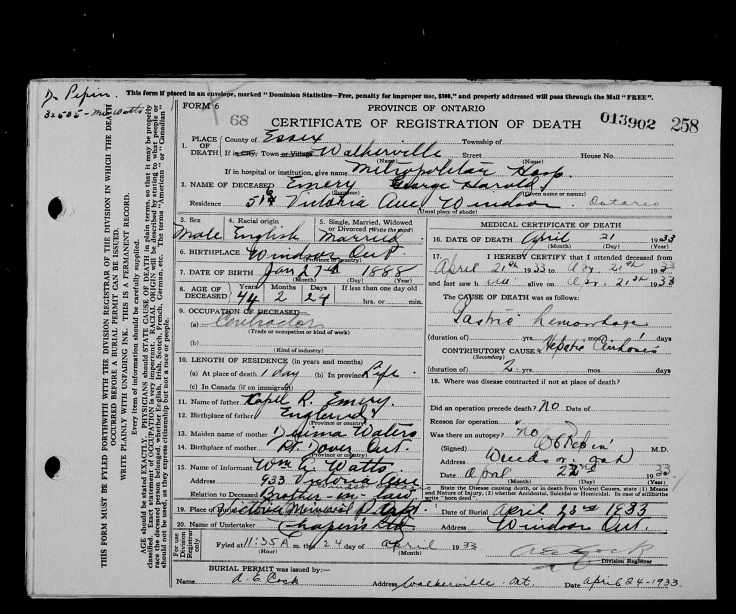 Dr Pepin.
This form if placed in an envelope, marked "Dominion Statistics—Free, penalty for improper use, $300," and properly addressed will pass through the Mail "FREE".
FORM 6
PROVINCE OF ONTARIO
68
CERTIFICATE OF REGISTRATION OF DEATH
013902 258
1. PLACE OF DEATH County of Essex Township of
If in City Town or Village Walkerville Street House No.
(Name)
If in hospital or institution, give name Metropolitan Hosp
2. NAME OF DECEASED Emery George Harold
(Surname) (Given name or names)
Residence Victoria Ave, Windsor Ontario
(Usual place of abode)
3. Sex 4. Racial origin 5. Single, Married, Widowed or Divorced (Write the word)
Male English Married
6. BIRTHPLACE Windsor Ont
(Province or country)
7. DATE OF BIRTH Jan 1888
(Month) (Day) (Year)
8. AGE OF DECEASED Years Months Days If less than one day old
44 2 24 hrs. or min.
9. OCCUPATION OF DECEASED
(a) Contractor
(Trade or occupation or kind of work)
(b)
(Kind of industry)
10. LENGTH OF RESIDENCE (in years and months)
(a) At place of death 1 day (b) In province Life
(c) In Canada (if an immigrant)
11. Name of father R. Emery
12. Birthplace of father England
(Province or country)
13. Maiden name of mother Waters
14. Birthplace of mother Pt Dover Ont.
(Province or country)
15. Name of informant Wm Watts
Address 933 Victoria Ave
Relation to Deceased Brother-in-law
19. Place of Burial Victoria Memorial
20. Name of Undertaker Chapin's Ltd
For use of Division Registrar only
Fyled at 11:35 A m. this 24 day of April 1933
(Hour) (Month)
MEDICAL CERTIFICATE OF DEATH
16. DATE OF DEATH April 21 1933
(Month) (Day) (Year)
17. I HEREBY CERTIFY that I attended deceased from
April 21st 1933 to Ap. 21st 1933
and last saw h im alive on Ap. 21st 1933
The CAUSE OF DEATH was as follows:
Gastric hemorrhage
(duration of) yrs. mos. 1 days
CONTRIBUTORY CAUSE Hepatic Cirrhosis
(Secondary)
(duration of) 2 yrs. mos. days
18. Where was disease contracted if not at place of death?
Did an operation precede death? No Date of
Reason for operation
Was there an autopsy? No
(Signed) M.D.
Address Windsor Ont
Date April 22nd 1933
(Month) (Day) (Year)
State the Disease causing death, or in death from Violent Causes, state (1) Means and Nature of Injury, (2) whether Accidental, Suicidal or Homicidal. In case of stillbirth write "born dead".
Date of Burial April 23rd 1933
Address Windsor Ont.
A E Cock
Division Registrar
BURIAL PERMIT was issued by:—
Name A. E. Cock Address Walkerville Ont. Date April 24-1933.
THIS FORM MUST BE FILED FORTHWITH WITH THE DIVISION REGISTRAR OF THE DIVISION IN WHICH THE DEATH
OCCURRED BEFORE A BURIAL PERMIT CAN BE ISSUED.
WRITE PLAINLY WITH UNFADING INK. THIS IS A PERMANENT RECORD.
Every item of information should be carefully supplied.
AGE should be stated EXACTLY. PHYSICIANS should STATE CAUSE OF DEATH in plain terms, so that it may be properly
classified. Exact statement of OCCUPATION is very important. RACIAL ORIGIN will be described by stating to what people or
race the deceased person belonged, whether English, Irish, Scotch, French, German, etc. The terms "American" or "Canadian"
should not be used, as they express citizenship but not a race or people.